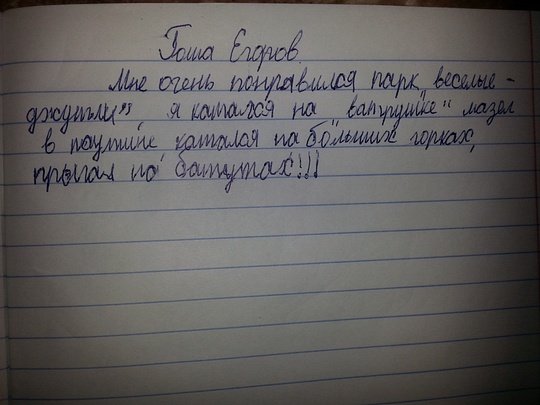 Гоша Егоров.
Мне очень понравился парк „веселые -
джунгли", я катался на „ватрушке" лазел
в паутине катался на больших горках,
прыгал на батутах!!!